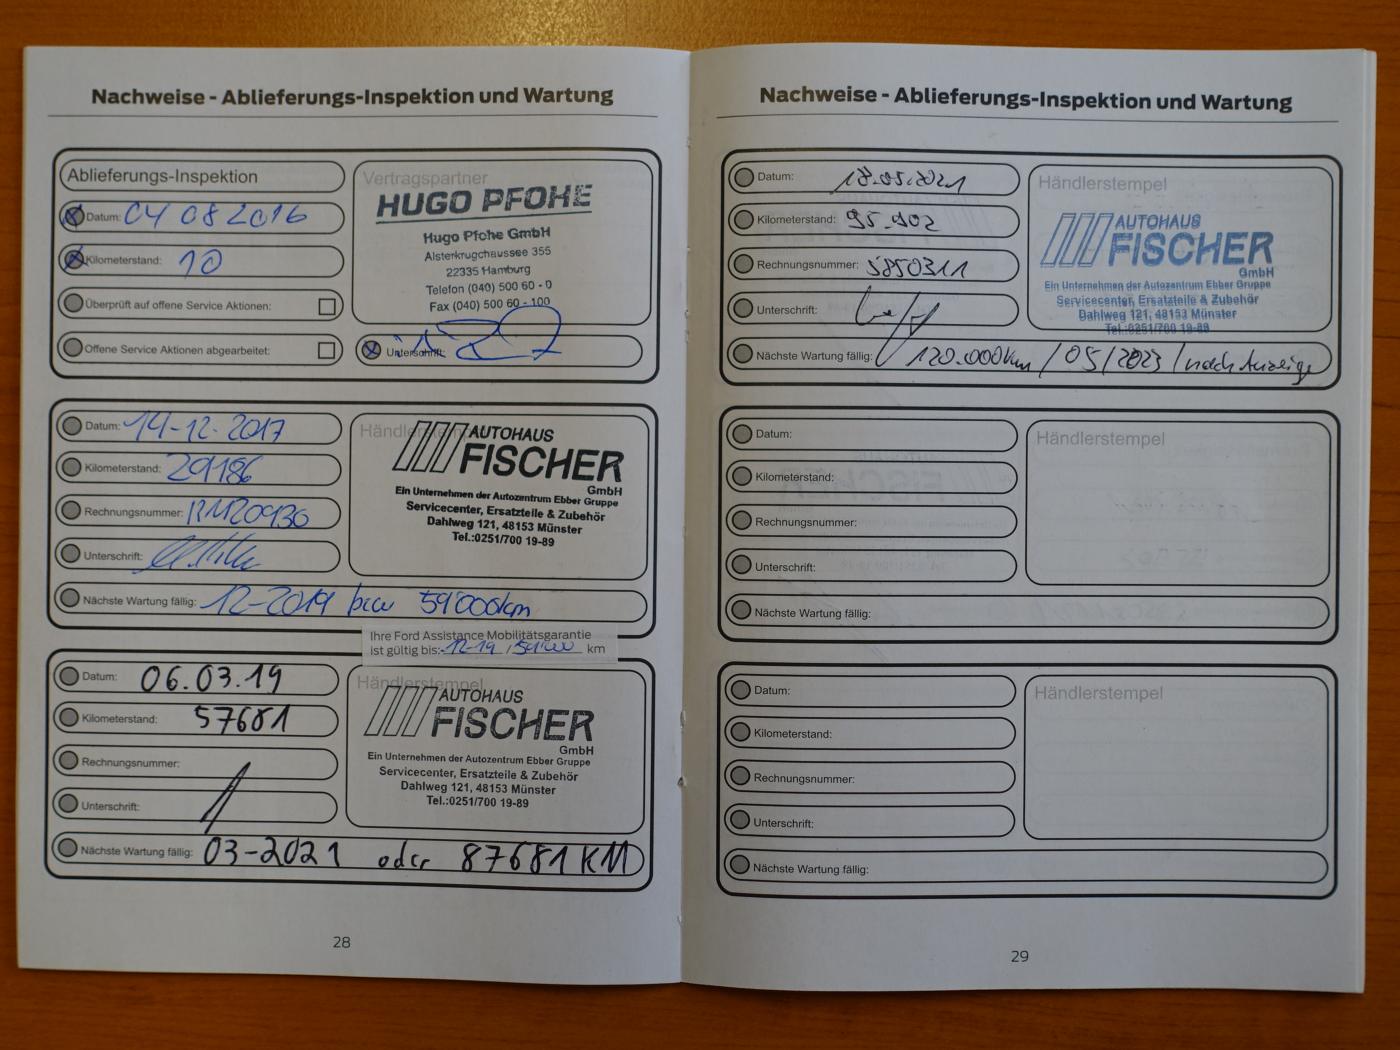 Nachweise - Ablieferungs-Inspektion und Wartung
Ablieferungs-Inspektion
Datum: 04 08 2016
Kilometerstand: 10
Überprüft auf offene Service Aktionen:
Offene Service Aktionen abgearbeitet:
Vertragspartner
HUGO PFOHE
Hugo Pfohe GmbH
Alsterkrugchaussee 355
22335 Hamburg
Telefon (040) 500 60 - 0
Fax (040) 500 60 - 100
Unterschrift:
Datum: 14-12-2017
Kilometerstand: 29186
Rechnungsnummer:
Unterschrift:
Nächste Wartung fällig: 12-2019 bzw 59000km
Händlerstempel
AUTOHAUS
FISCHER
GmbH
Ein Unternehmen der Autozentrum Ebber Gruppe
Servicecenter, Ersatzteile & Zubehör
Dahlweg 121, 48153 Münster
Tel.:0251/700 19-89
Ihre Ford Assistance Mobilitätsgarantie
ist gültig bis: 12-19 / 59000 km
Datum: 06.03.19
Kilometerstand: 57681
Rechnungsnummer:
Unterschrift:
Nächste Wartung fällig: 03-2021 oder 87681 KM
Händlerstempel
AUTOHAUS
FISCHER
GmbH
Ein Unternehmen der Autozentrum Ebber Gruppe
Servicecenter, Ersatzteile & Zubehör
Dahlweg 121, 48153 Münster
Tel.:0251/700 19-89
28
Nachweise - Ablieferungs-Inspektion und Wartung
Datum: 18.05.2021
Kilometerstand: 95.902
Rechnungsnummer: 5850311
Unterschrift:
Nächste Wartung fällig: 120.000km / 05/2023 / nach Anzeige
Händlerstempel
AUTOHAUS
FISCHER
GmbH
Ein Unternehmen der Autozentrum Ebber Gruppe
Servicecenter, Ersatzteile & Zubehör
Dahlweg 121, 48153 Münster
Tel.:0251/700 19-89
Datum:
Kilometerstand:
Rechnungsnummer:
Unterschrift:
Nächste Wartung fällig:
Händlerstempel
Datum:
Kilometerstand:
Rechnungsnummer:
Unterschrift:
Nächste Wartung fällig:
Händlerstempel
29